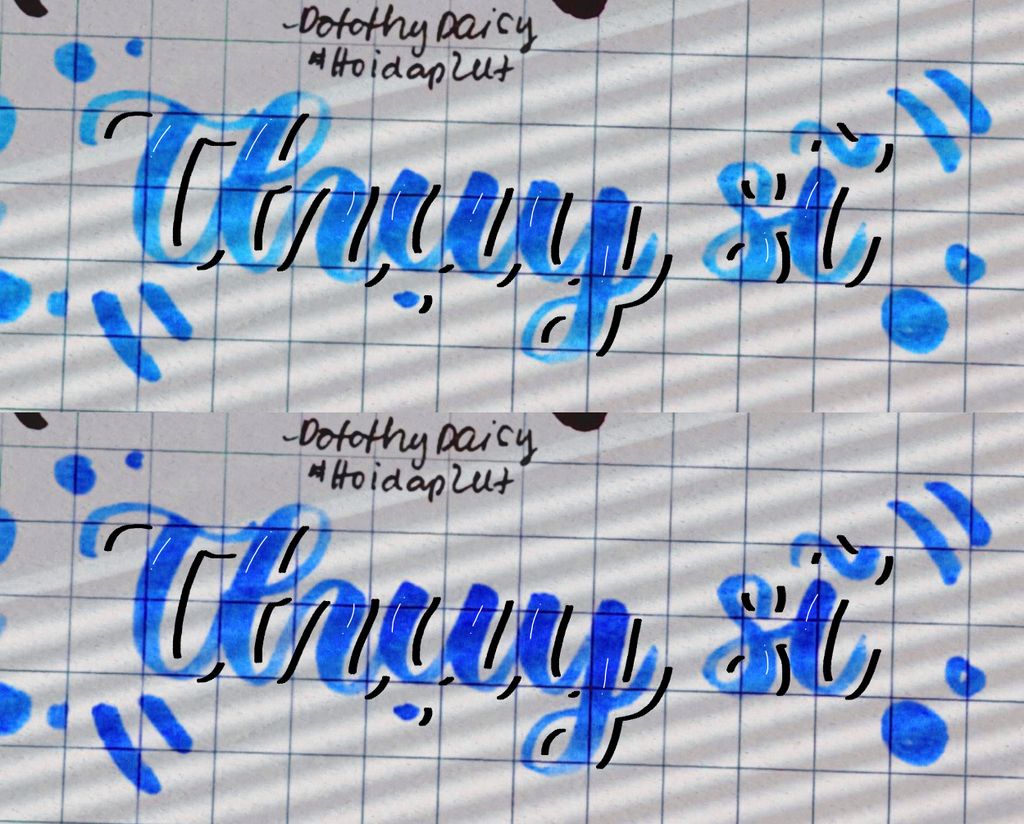 -DorothyDaisy
#Hoidap247
Thụy sĩ
-DorothyDaisy
#Hoidap247
Thụy sĩ